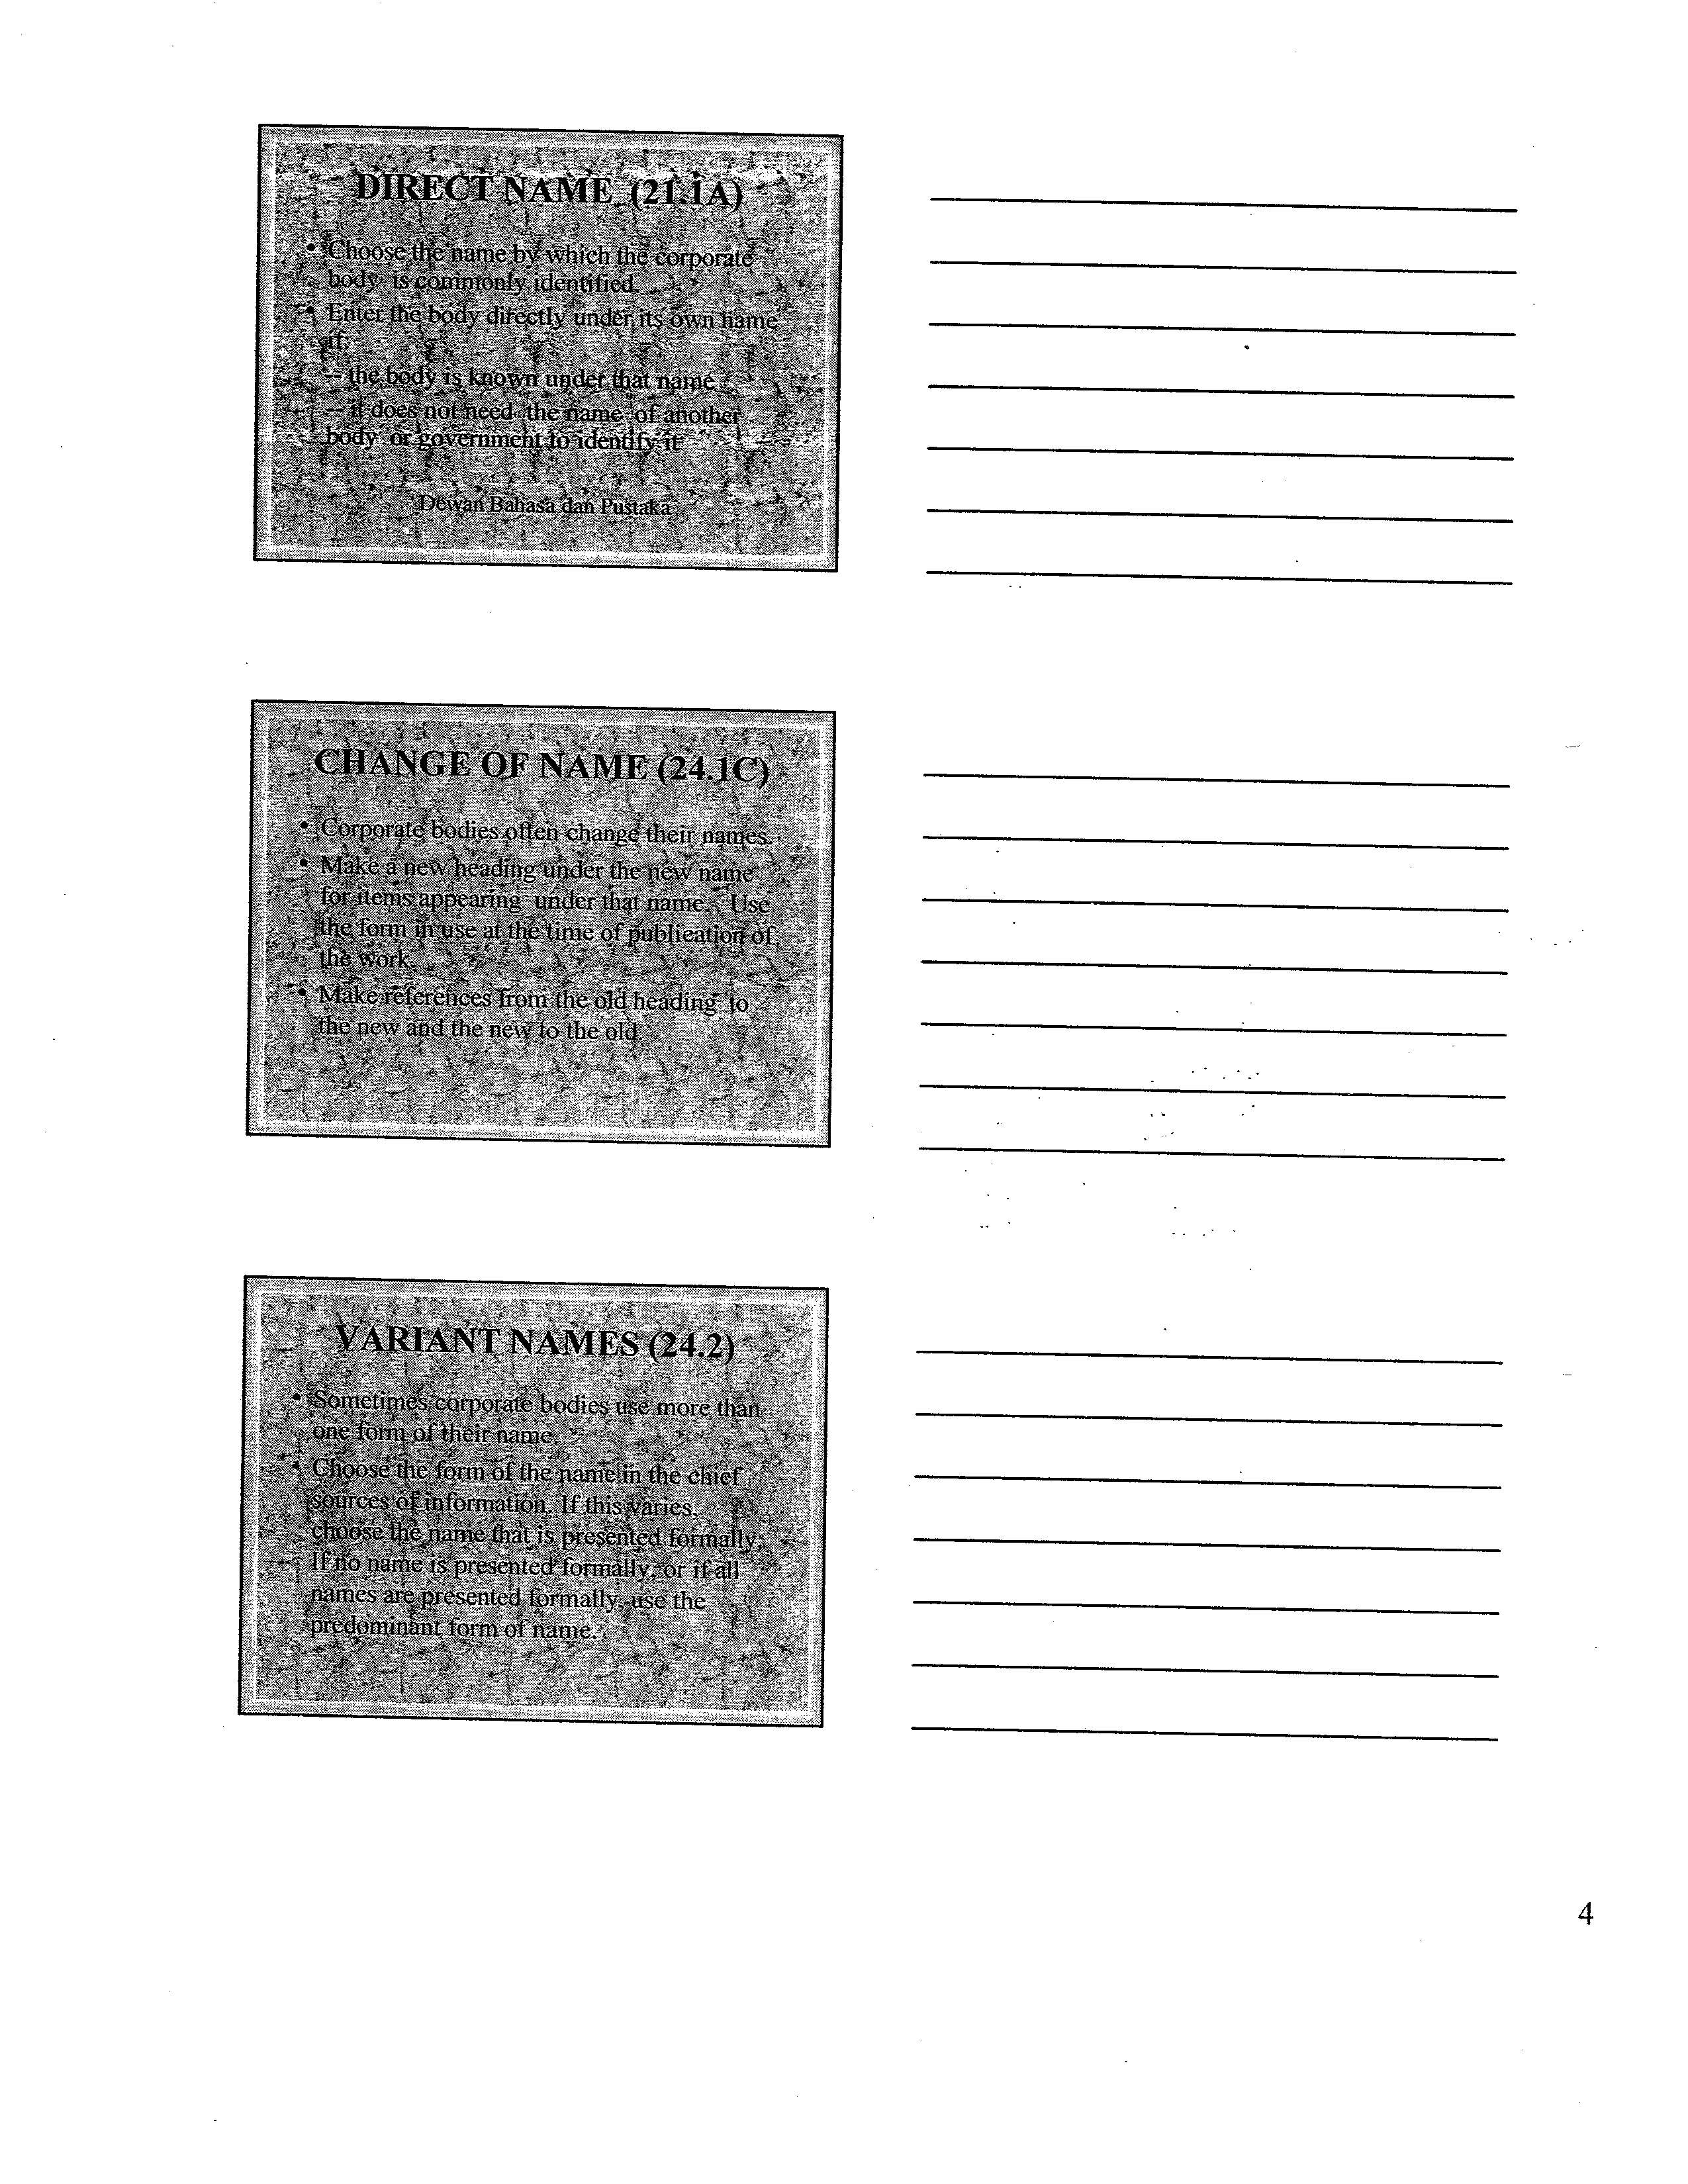 DIRECT NAME (21.1A)
• Choose the name by which the corporate
body is commonly identified.
• Enter the body directly under its own name
if:
– the body is known under that name
– it does not need the name of another
body or government to identify it
Dewan Bahasa dan Pustaka
CHANGE OF NAME (24.1C)
• Corporate bodies often change their names.
• Make a new heading under the new name
for items appearing under that name. Use
the form in use at the time of publication of
the work.
• Make references from the old heading to
the new and the new to the old.
VARIANT NAMES (24.2)
• Sometimes corporate bodies use more than
one form of their name.
• Choose the form of the name in the chief
sources of information. If this varies,
choose the name that is presented formally.
If no name is presented formally, or if all
names are presented formally, use the
predominant form of name.
4